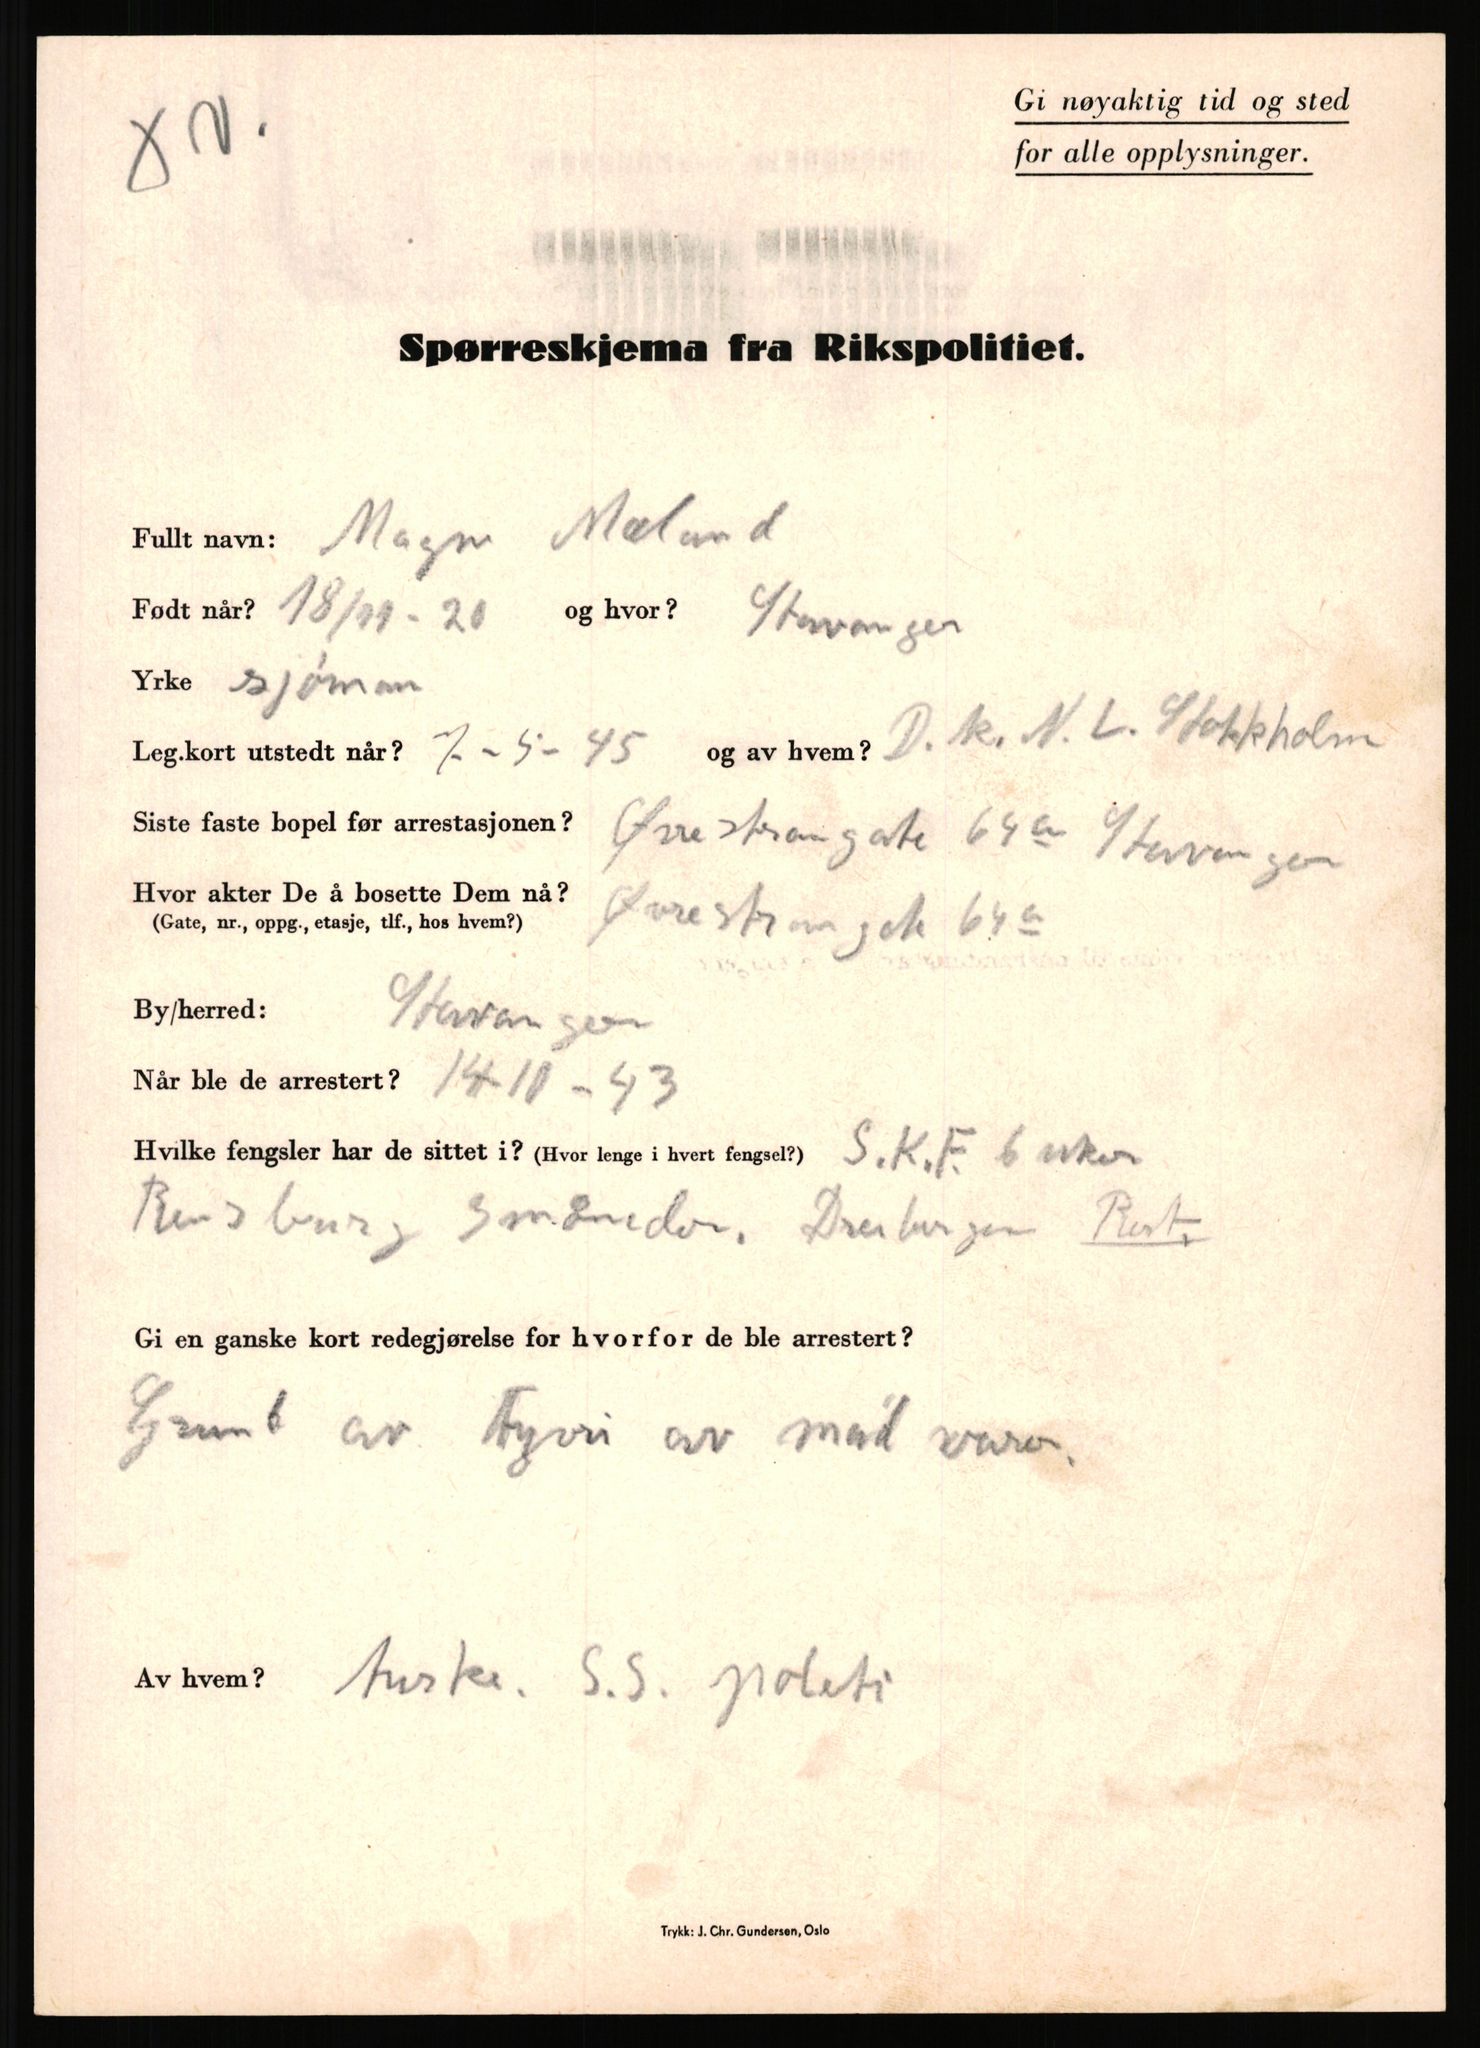 Gi nøyaktig tid og sted
for alle opplysninger.
Spørreskjema fra Rikspolitiet.
Fullt navn: Magne Mæland
Født når? 18/11-20 og hvor? Stavanger
Yrke sjöman
Leg.kort utstedt når? 7-5-45 og av hvem? D.K.N.L. Stokkholm
Siste faste bopel før arrestasjonen? Øvrestrangate 64a Stavanger
Hvor akter De å bosette Dem nå? Øvrestrangate 64a
(Gate, nr., oppg., etasje, tlf., hos hvem?)
By/herred: Stavanger
Når ble de arrestert? 14-10-43
Hvilke fengsler har de sittet i? (Hvor lenge i hvert fengsel?) S.K.F. 6 uker
Rensburg 3 måneder. Dreibergen Rest.
Gi en ganske kort redegjørelse for hvorfor de ble arrestert?
Grunt av Tyvri av mád varer.
Av hvem? S.S. politi
Trykk: J. Chr. Gundersen, Oslo